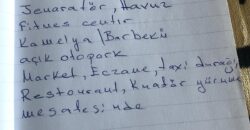 Jenaratör, Havuz
Fitnes centir
Kamelya \ Barbekü
açık otopork
Market, Eczane, taxi durağı,
Restourant, Kuaför yürüme
mesafesinde